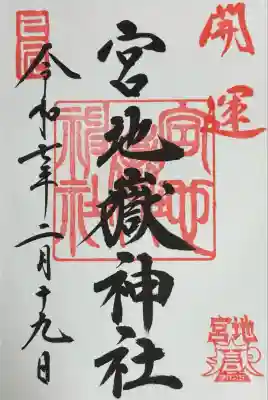 開運
宮地嶽神社
宮地嶽神社
令和七年二月十九日
宮地嶽